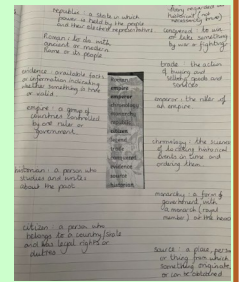 republic : a state in which
power is held by the people
and their elected representatives
Roman : to do with
ancient or modern
Rome or its people
evidence : available facts
or information indicating
whether something is true
or valid
empire : a group of
countries controlled
by one ruler or
government.
historian : a person who
studies and writes
about the past.
citizen : a person who
belongs to a country/state
and has legal rights or
duties
conquered : to win
or take something
by war or fighting.
trade : the action
of buying and
selling goods and
services
emperor : the ruler of
an empire.
chronology : the science
of
events
ordering them.
monarchy : a form of
government with
a monarch (royal
member) at the head
source : a place, person
or thing from which
something originates
or can be obtained
Roman
empire
emperor
chronology
monarchy
republic
citizen
trade
conquered
evidence
source
historian